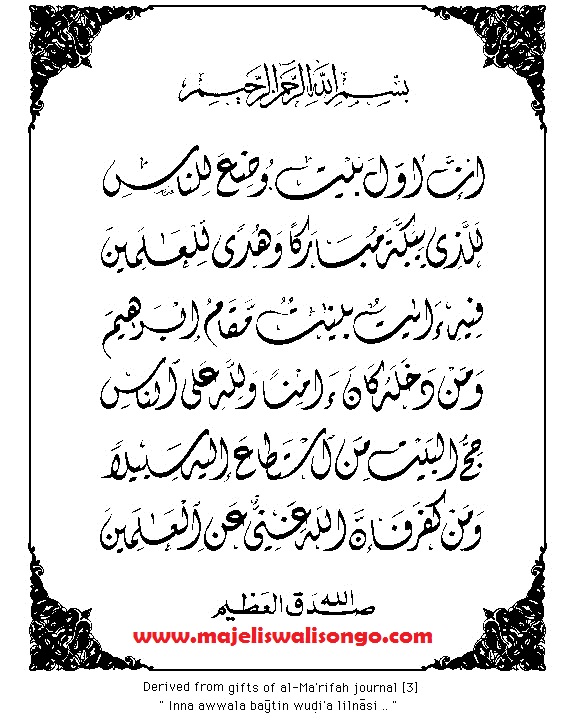 بِسْمِ اللَّهِ الرَّحْمَنِ الرَّحِيمِ
إِنَّ أَوَّلَ بَيْتٍ وُضِعَ لِلنَّاسِ
لَلَّذِي بِبَكَّةَ مُبَارَكًا وَهُدًى لِلْعَٰلَمِينَ
فِيهِ ءَايَٰتٌ بَيِّنَٰتٌ مَّقَامُ إِبْرَٰهِيمَ
وَمَن دَخَلَهُ كَانَ ءَامِنًا وَلِلَّهِ عَلَى ٱلنَّاسِ
حِجُّ الْبَيْتِ مَنِ ٱسْتَطَاعَ إِلَيْهِ سَبِيلًا
وَمَن كَفَرَ فَإِنَّ اللَّهَ غَنِيٌّ عَنِ ٱلْعَٰلَمِينَ
صدق الله العظيم
www.majeliswalisongo.com
Derived from gifts of al-Ma'rifah journal [3]
" Inna awwala baỹtin wuḍi'a lilnāsi .. "